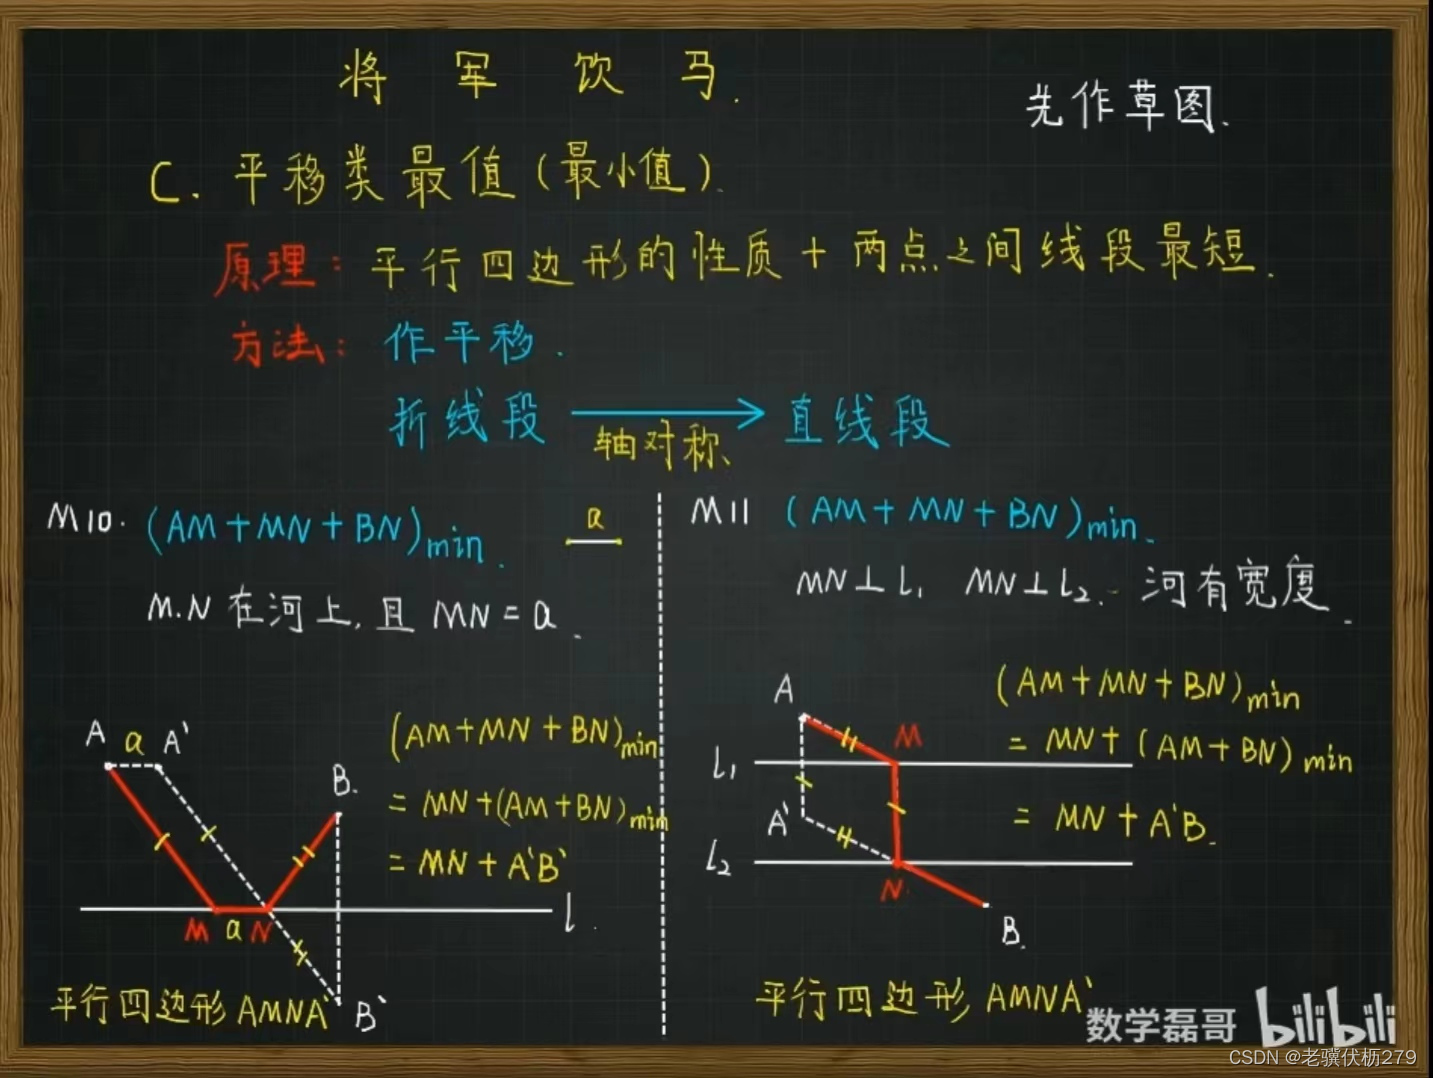 将军饮马.
先作草图.
C. 平移类最值(最小值).
原理: 平行四边形的性质 + 两点之间线段最短.
方法: 作平移.
折线段 → 直线段
轴对称、
M10. (AM+MN+BN)min.
a
M.N在河上, 且 MN = a.
A a A`
B.
(AM+MN+BN)min
= MN+(AM+BN)min
= MN + A`B`
M a N
l.
B`
平行四边形 AMNA`
M11 (AM+MN+BN)min.
MN⊥l₁ MN⊥l₂. 河有宽度.
A
M
l₁
A`
l₂
N.
B.
(AM+MN+BN)min
= MN+(AM+BN)min
= MN + A`B.
平行四边形 AMNA`
数学磊哥 bilibili
CSDN @老骥伏枥279